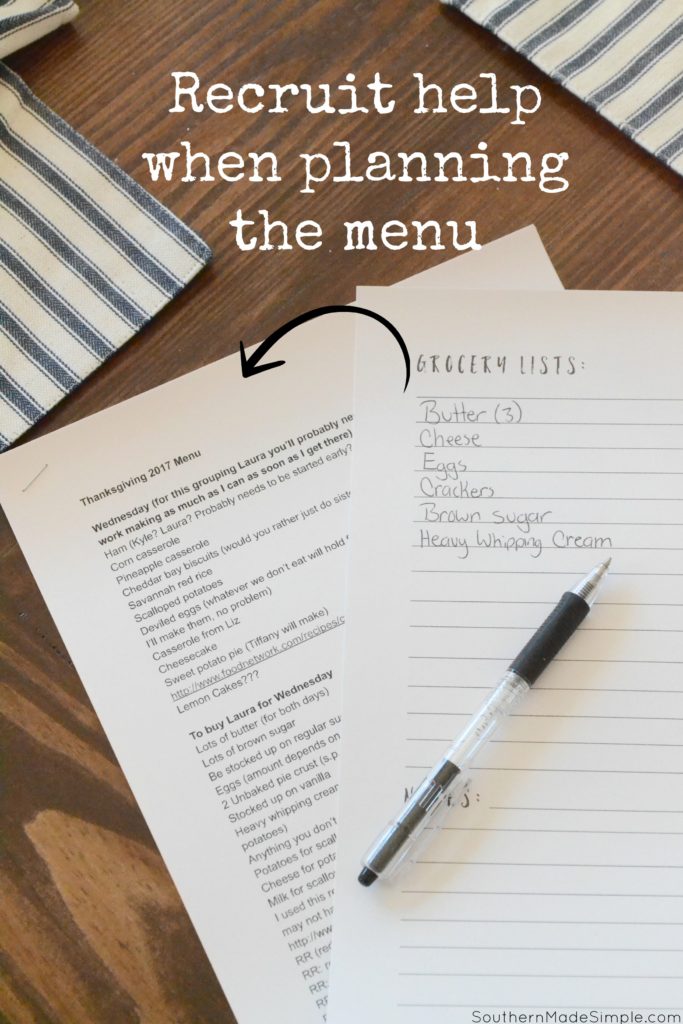 Recruit help
when planning
the menu
GROCERY LISTS:
Butter (3)
Cheese
Eggs
Crackers
Brown sugar
Heavy Whipping Cream
Thanksgiving 2017 Menu
Wednesday (for this grouping Laura you'll probably
work making as much as I can as soon as I get there)
Ham (Kyle? Laura? Probably needs to be started early?
Corn casserole
Pineapple casserole
Cheddar bay biscuits (would you rather just do
Savannah red rice
Scalloped potatoes
Deviled eggs (whatever we don't eat will hold
I'll make them, no problem)
Casserole from Liz
Cheesecake
Sweet potato pie (Tiffany will make)
http://www.foodnetwork.com/recipes/
Lemon Cakes???
To buy Laura for Wednesday
Lots of butter (for both days)
Lots of brown sugar
Be stocked up on regular
Eggs (amount depends on
2 Unbaked pie crust (s.p.
Stocked up on vanilla
Heavy whipping
potatoes)
Anything you don't
Potatoes for
Cheese for
Milk for
I used this
may not
RR
RR:
RR:
SouthernMadeSimple.com